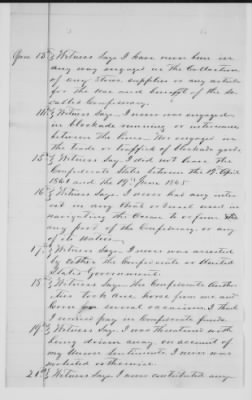 Ques 13th } Witness Says I have never been in
any way engaged in the Collection
of any Stores supplies or any articles
for the use and benefit of the So
called Confederacy.
14th } Witness Says. I never was engaged
in blockade running or intercourse
between the lines. Nor engaged in
the trade or traffick of blockade goods.
15th } Witness Says I did not leave the
Confederate States between the 19 April
1861 and the 19th June 1865
16th } Witness Says. I never had any inter
est in any Boat or Vessel used in
navigating the Ocean to or from the
any port of the Confederacy or any
of the Waters.
17th } Witness Says. I never was arrested
by Either the Confederate or United
States Government.
18th } Witness Says. The Confederate Autho
rities took one horse from me one
on several occasions. I think
I received pay in Confederate funds.
19th } Witness Says. I was threatened with
being driven away on account of
my Union Sentiments. I never was
molested otherwise.
21st } Witness Says I never contributed any